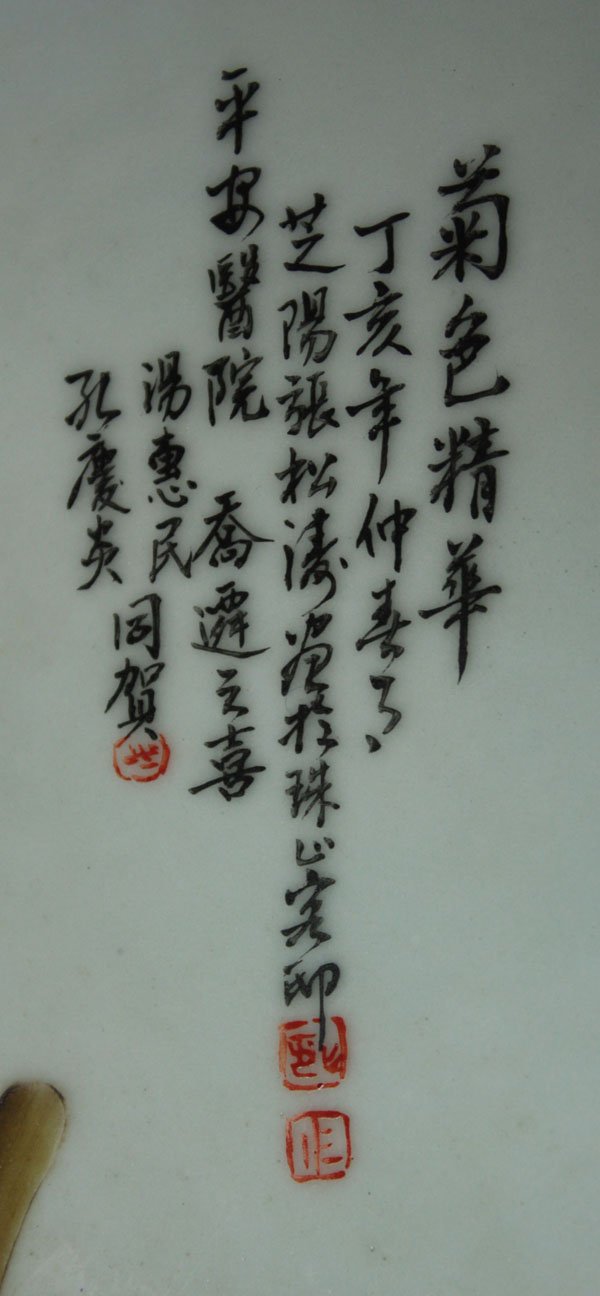 菊色精華
丁亥年仲春月
芝陽張松濤画於珠山客邸
平安醫院 喬遷之喜
湯惠民
孔慶炎
同賀